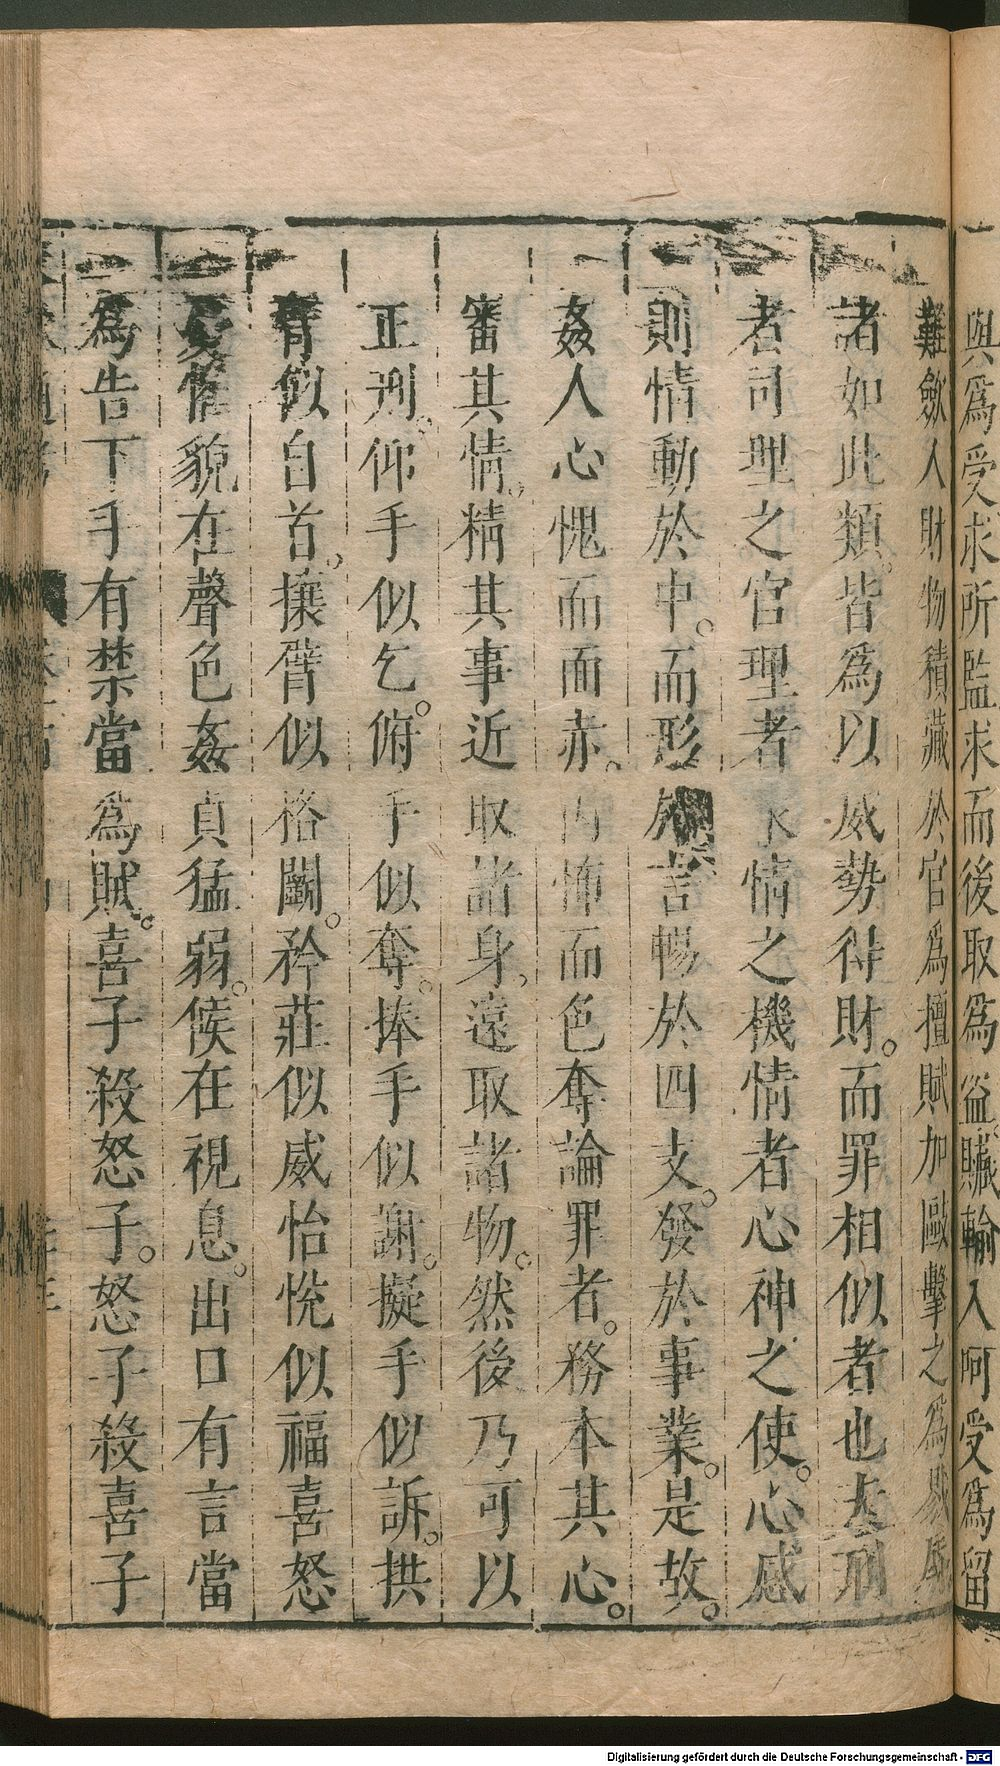 與為受求所監求而後取為盜贓輸入呵受為留
難斂人財物積藏於官為擅賦加敺擊之為戮
諸如此類皆為以威勢得財。而罪相似者也夫刑
者司理之官理者求情之機情者心神之使。心感
則情動於中。而形於言暢於四支。發於事業。是故。
姦人心愧而面赤。內怖而色奪論罪者。務本其心。
審其情。精其事近取諸身。遠取諸物。然後乃可以
正刑。仰手似乞。俯手似奪。捧手似謝。擬手似訴。拱
臂似自首。攘臂似格鬭。矜莊似威怡悅似福喜怒
憂懼貌在聲色姦貞猛弱。候在視息。出口有言當
為告下手有禁當為賊。喜子殺怒子。怒子殺喜子
Digitalisierung gefördert durch die Deutsche Forschungsgemeinschaft - DFG